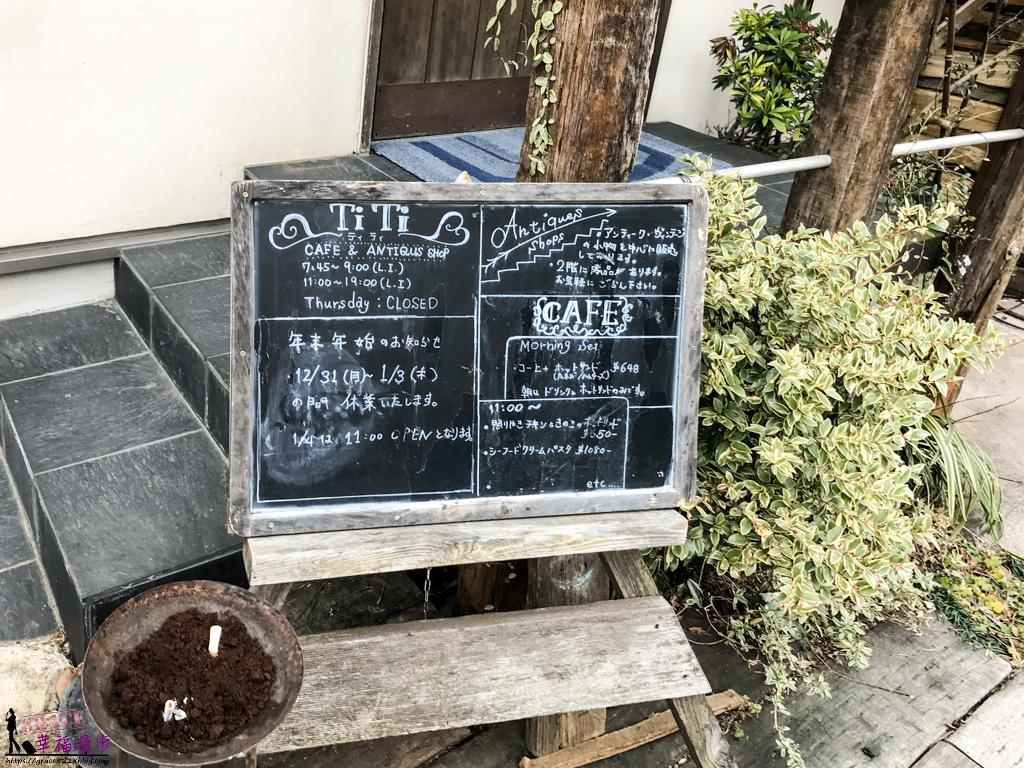 TiTi
ティティ
CAFE & ANTIQUS SHOP
7:45～9:00 (L.I.)
11:00～19:00 (L.I)
Thursday : CLOSED
年末年始のお知らせ
12/31(月)～1/3(木)
の間 休業いたします。
1/4は 11:00 OPENとなります。
Antiques
shops
アンティーク・
の小物を
しております。
・2階に商品があります。
お気軽にごらん下さい。
CAFE
Morning Set
・コーヒー+ホットサンド ¥648
朝は ドリンクと ホットサンドのみです。
11:00～
・照りやきチキンときのこの
¥850-
・シーフードクリームパスタ ¥1080-
・
etc....
GRACE
幸福漫步
https://grace522x.blog.com